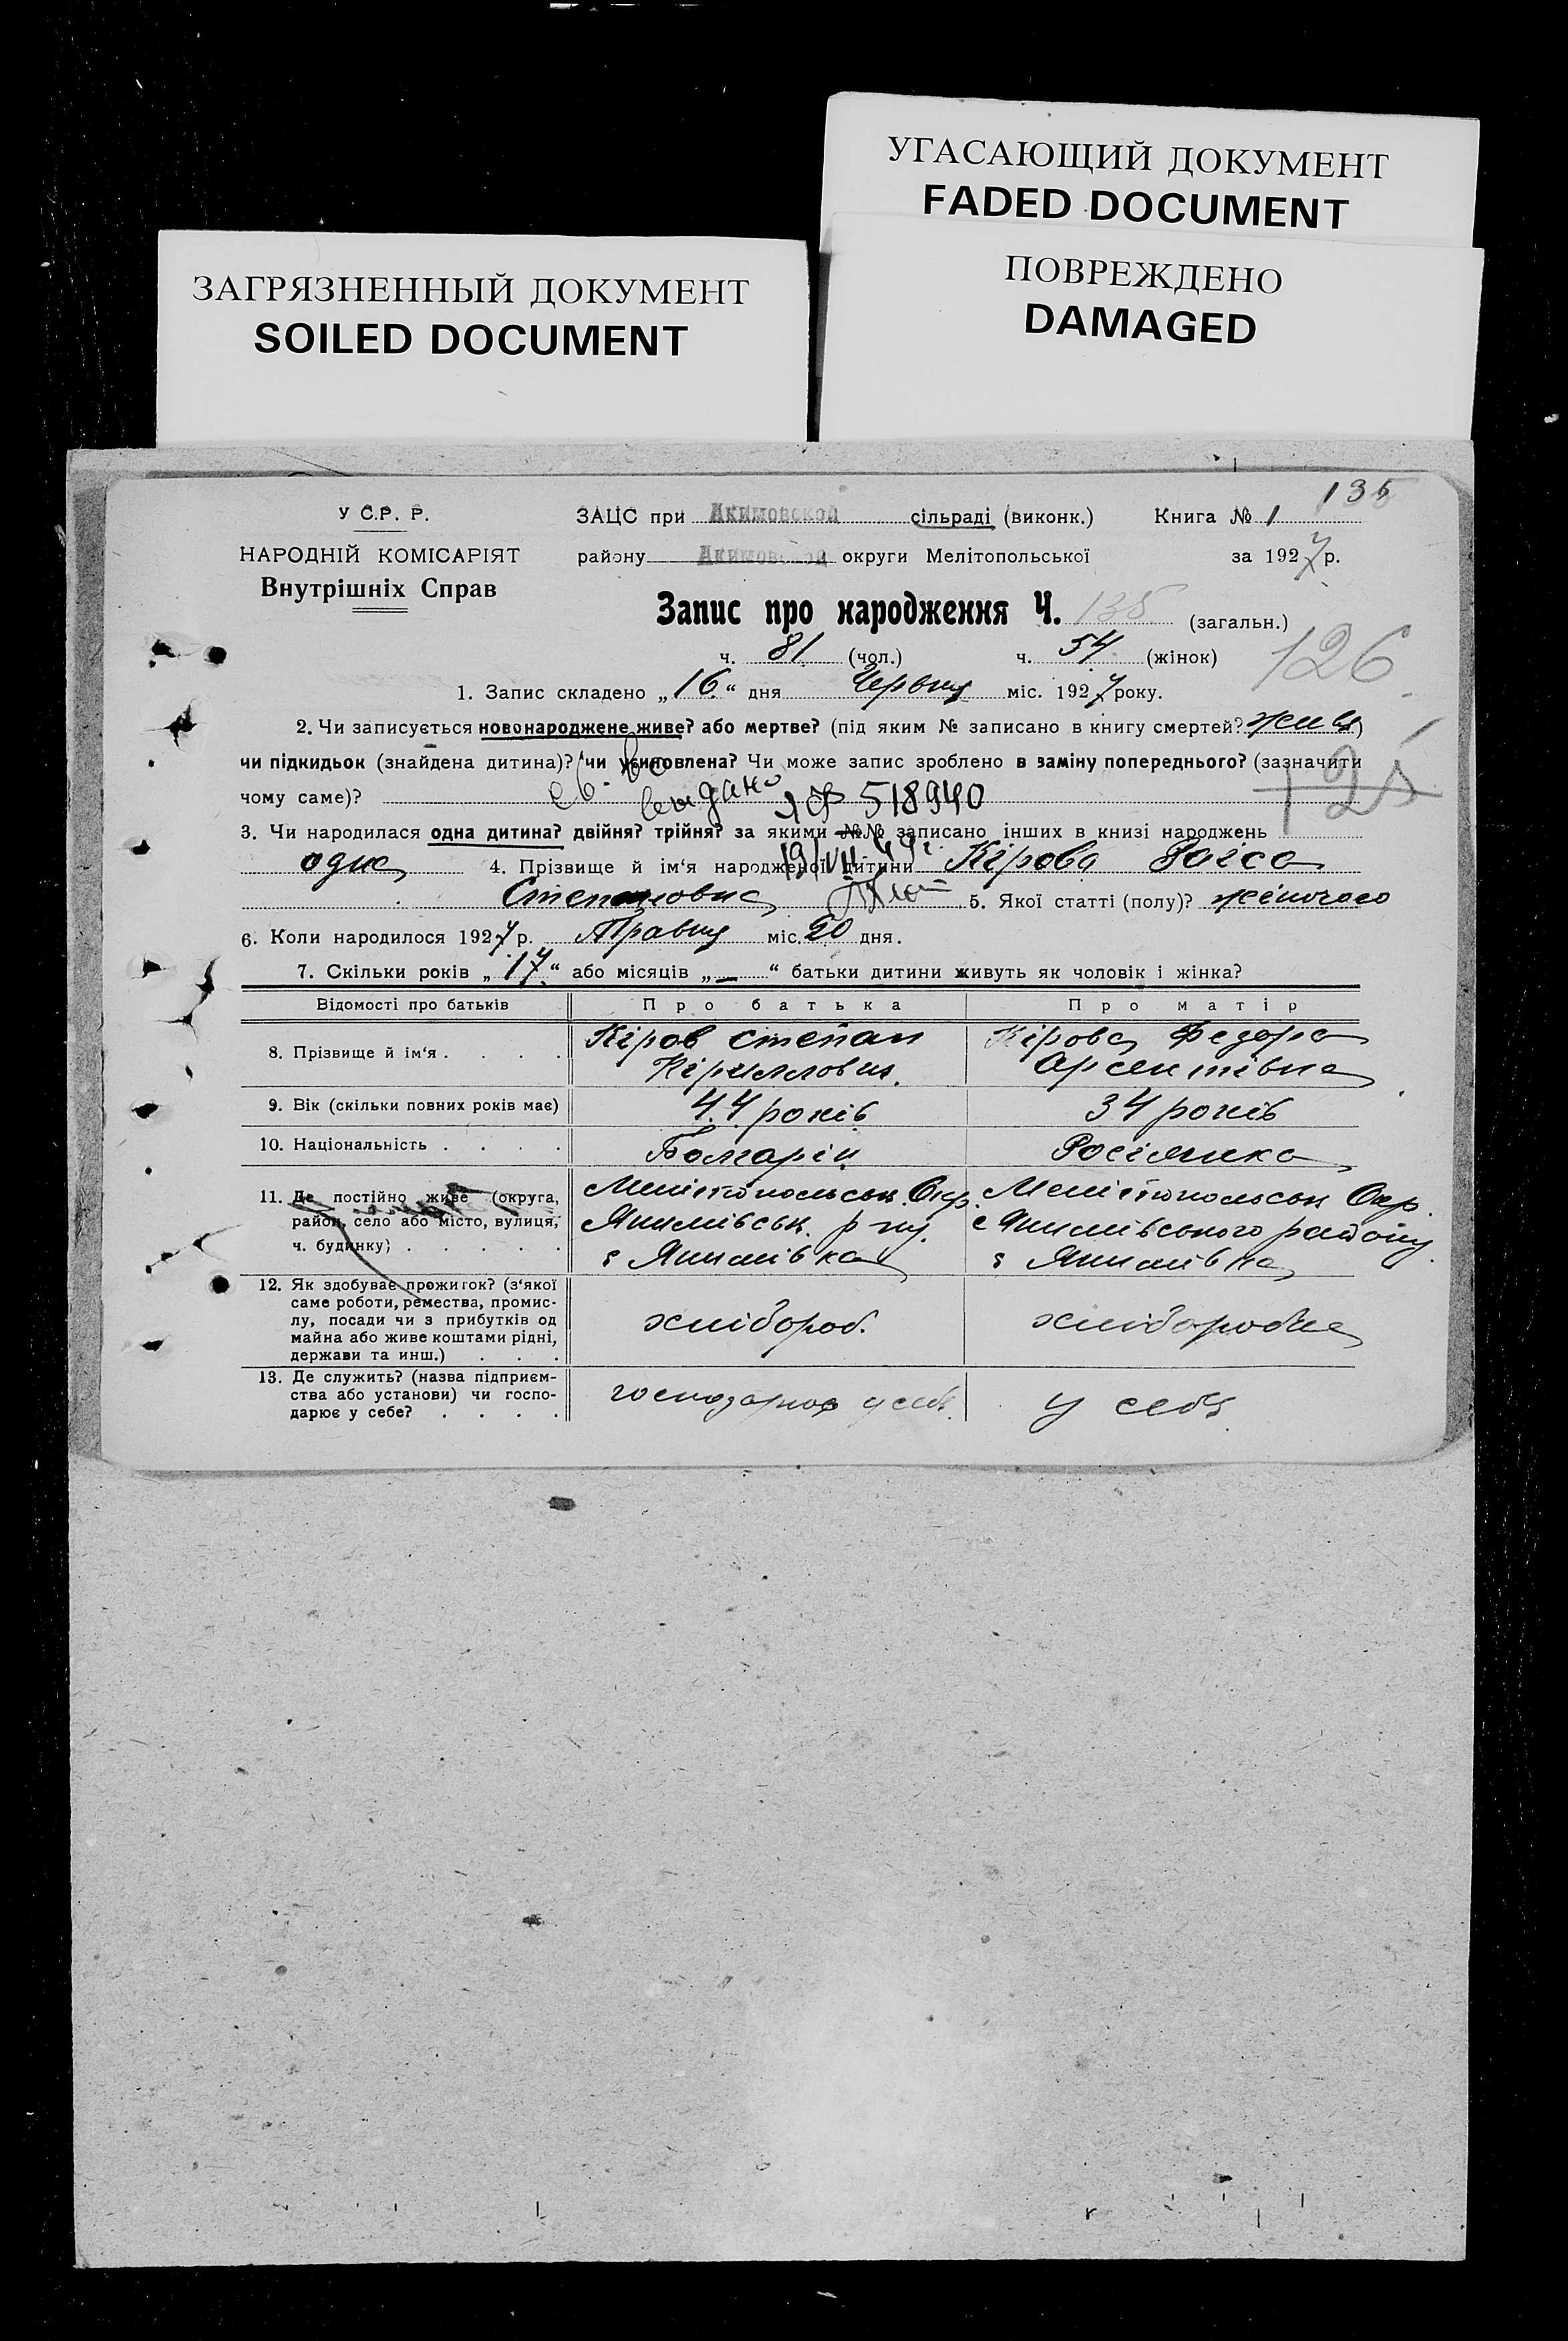 УГАСАЮЩИЙ ДОКУМЕНТ
FADED DOCUMENT
ПОВРЕЖДЕНО
DAMAGED
ЗАГРЯЗНЕННЫЙ ДОКУМЕНТ
SOILED DOCUMENT
135
У С.Р. Р.
НАРОДНІЙ КОМІСАРІЯТ
Внутрішніх Справ
ЗАЦС при Акимовской сільраді (виконк.) Книга № 1
району Акимовской округи Мелітопольської за 1927 р.
Запис про народження Ч. 135 (загальн.)
ч. 81 (чол.) ч. 54 (жінок)
126
1. Запис складено „16“ дня Червня міс. 1927 року.
2. Чи записується новонароджене живе? або мертве? (під яким № записано в книгу смертей? живе)
чи підкидьок (знайдена дитина)? чи усиновлена? Чи може запис зроблено в заміну попереднього? (зазначити
чому саме)?
св-во видано ЯФ 518940
125
3. Чи народилася одна дитина? двійня? трійня? за якими №№ записано інших в книзі народжень
19/VII-49г.
одна 4. Прізвище й ім‘я народженої дитини Кірова Раіса
Степановна 5. Якої статті (полу)? жіночого
6. Коли народилося 1927 р. Травня міс. 20 дня.
7. Скільки років „17“ або місяців „—“ батьки дитини живуть як чоловік і жінка?
Відомості про батьків Про батька Про матір
8. Прізвище й ім‘я . . . . Кіров Степан Кірова Федора
Кіриллович Арсентівна
9. Вік (скільки повних років має) 44 років 34 років
10. Національність . . . . Болгарін Росіянка
11. Де постійно живе (округа, Мелітопольськ. Окр. Мелітопольськ Окр.
район, село або місто, вулиця, Якимівськ. р-ну. Якимівського району
ч. будинку) . . . . . с Якимівка с Якимівка
12. Як здобуває прожиток? (з‘якої
саме роботи, ремества, промис-
лу, посади чи з прибутків од хлібороб. хліборобка
майна або живе коштами рідні,
держави та инш.) . . .
13. Де служить? (назва підприєм-
ства або установи) чи госпо- господарює у себе. у себе
дарює у себе? . . . .